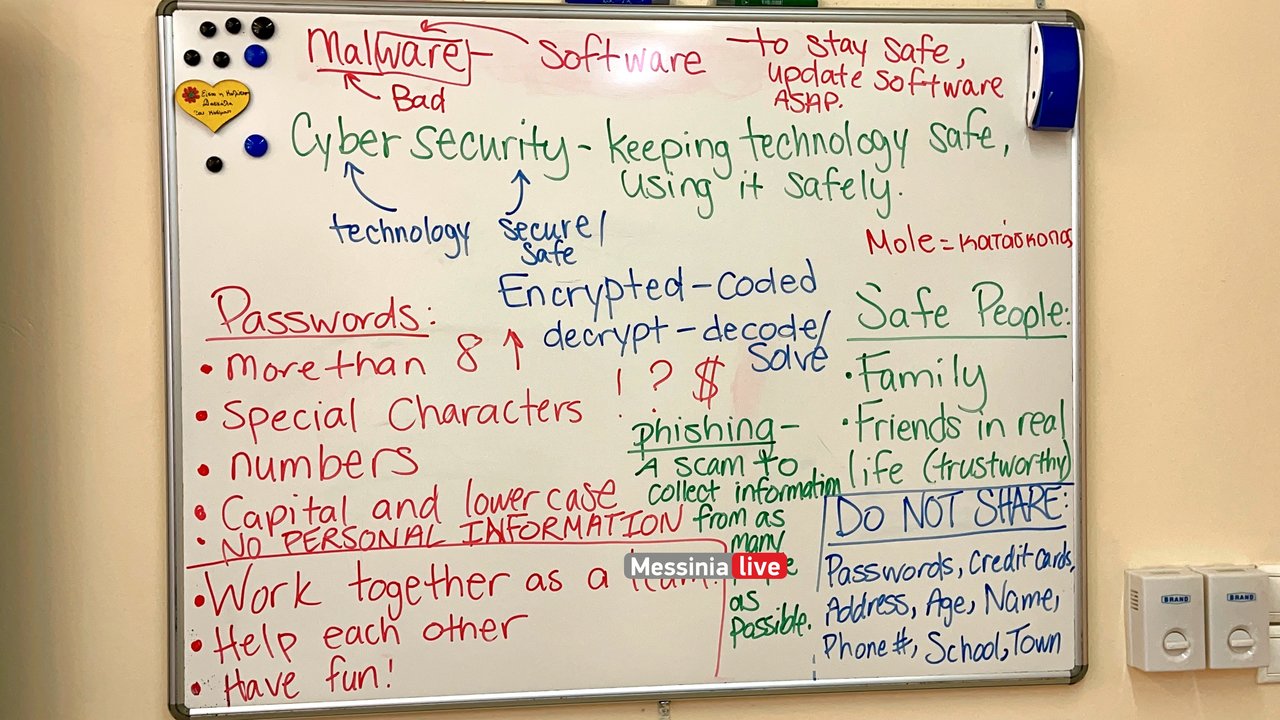 Malware - software - to stay safe,
update software
ASAP.
Bad
Cyber security - keeping technology safe,
using it safely.
technology secure/
safe
Mole = κατάσκοπος
Encrypted - coded
decrypt - decode/
solve
Passwords:
• More than 8 ↑
• Special Characters ! ? $
• numbers
• Capital and lower case
• NO PERSONAL INFORMATION
• Work together as a team!
• Help each other
• Have fun!
phishing -
A scam to
collect information
from as
many
as
possible.
Safe People:
• Family
• Friends in real
life (trustworthy)
DO NOT SHARE:
Passwords, Credit Cards,
Address, Age, Name,
Phone #, School, Town
Messinia live
BRAND
BRAND